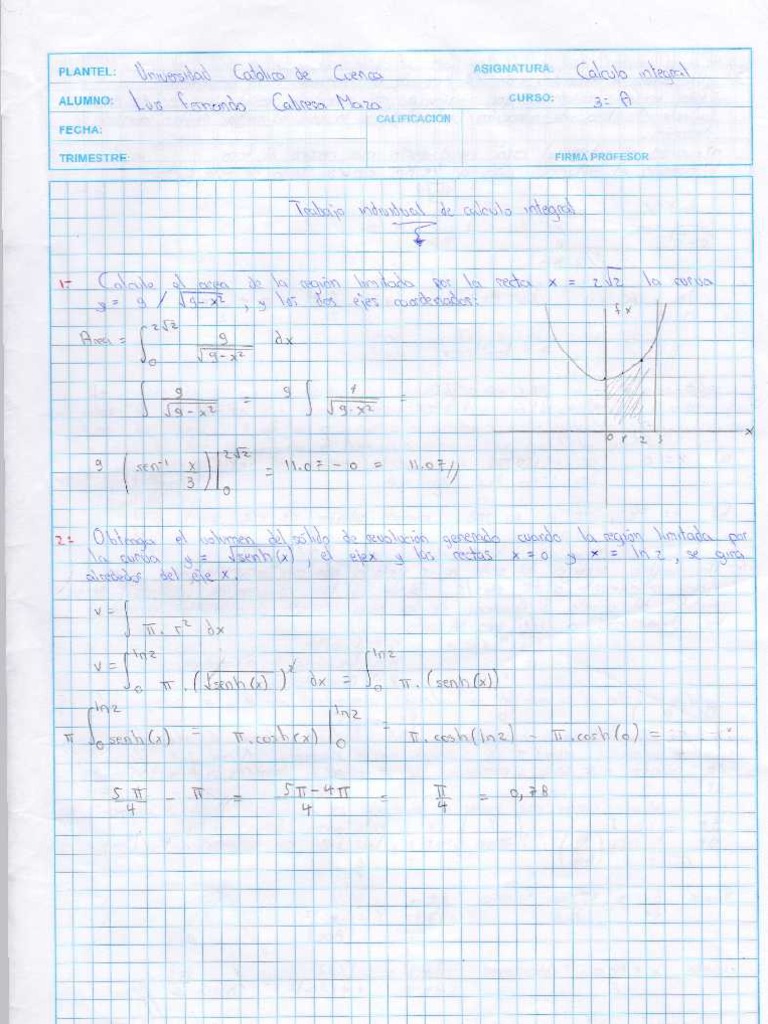 PLANTEL: Universidad Católica de Cuenca ASIGNATURA: Calculo integral
ALUMNO: Luis Fernando Cabrera Maza CURSO: 3= A
FECHA: CALIFICACIÓN
TRIMESTRE: FIRMA PROFESOR
Trabajo individual de calculo integral
1- Calcule el area de la región limitada por la recta x = 2√2 la curva
y = 9 / √9-x² , y los dos ejes coordenados:
fx
Area = ∫₀^{2√2} 9/√9-x² dx
∫ 9/√9-x² = 9 ∫ 1/√9-x² =
0 1 2 3 x
9 (sen⁻¹ x/3)|₀^{2√2} = 11.07 - 0 = 11.07//
2: Obtenga el volumen del sólido de revolución generado cuando la región limitada por
la curva y = √senh(x) , el eje x y las rectas x = 0 y x = ln 2 , se gira
alrededor del eje x.
v = ∫ π. r² dx
v = ∫₀^{ln2} π . (√senh(x))² dx = ∫₀^{ln2} π . (senh(x))
π ∫₀^{ln2} senh(x) = π.cosh(x) |₀^{ln2} = π.cosh(ln2) - π.cosh(0) =
5π/4 - π = 5π-4π/4 = π/4 = 0,78